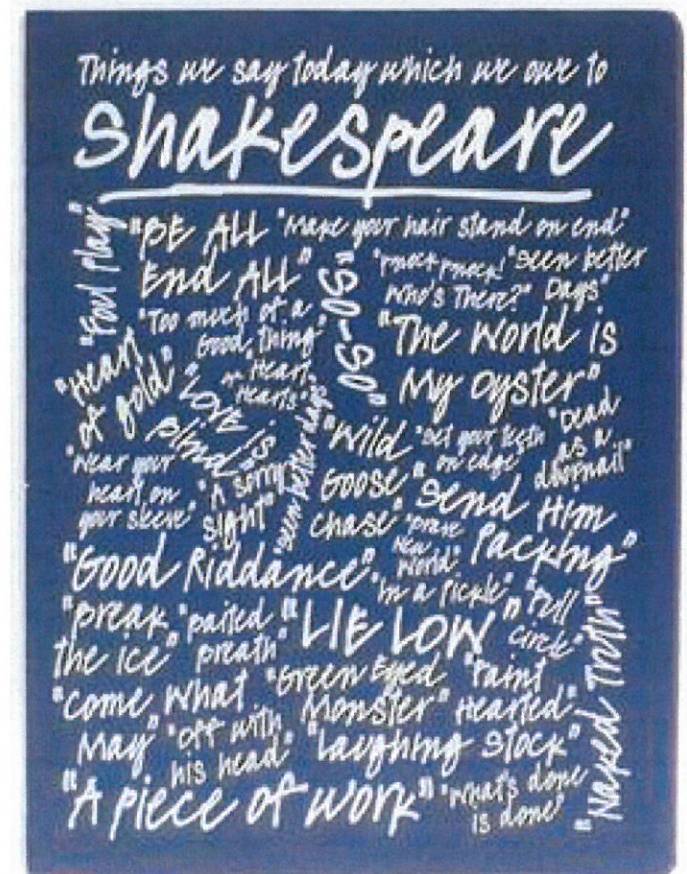 Things we say today which we owe to
Shakespeare
"Foul Play"
"BE ALL
End ALL"
"Make your hair stand on end"
"SO-SO"
"Knock knock!
Who's There?"
"Seen better
Days"
"Too much of a
Good thing"
"The World is
My Oyster"
"Heart
of gold"
"Love
is
Blind"
Heart
Hearts"
"Seen better days"
"Wild
Goose
chase"
"Set your teeth
on edge"
"Dead
as a
doornail"
"Wear your
heart on
your sleeve"
"A sorry
sight"
"Send Him
Packing"
"Brave
New
World"
"Good Riddance"
"In a Pickle"
"Full
Circle"
"Break
the ice"
"Baited
Breath"
"LIE LOW"
"Naked Truth"
"Come What
May"
"Green Eyed
Monster"
"Faint
Hearted"
"Off with
his head"
"Laughing Stock"
"A piece of work"
"What's done
is done"